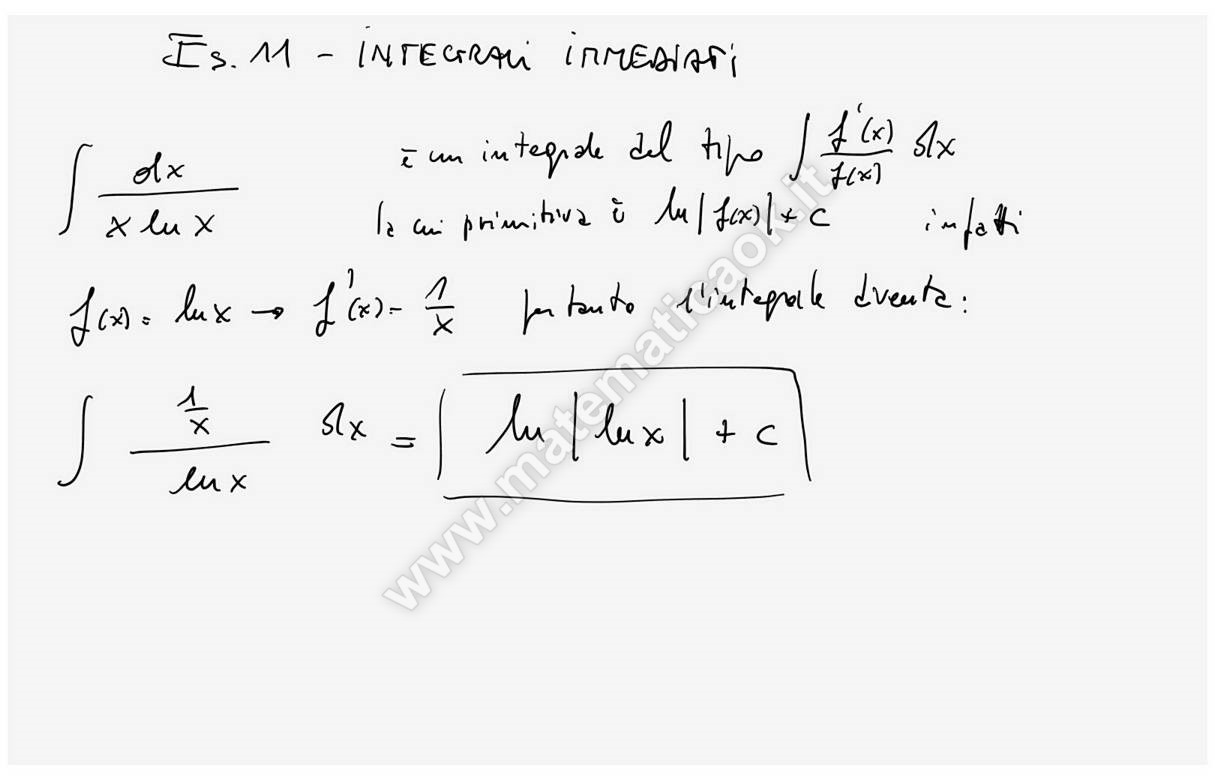 Es. 11 - INTEGRALI IMMEDIATI
∫ dx / (x ln x) è un integrale del tipo ∫ f'(x)/f(x) dx
la cui primitiva è ln|f(x)| + c infatti
f(x) = ln x → f'(x) = 1/x pertanto l'integrale diventa:
∫ (1/x) / (ln x) dx = ln |ln x| + c
www.matematicaok.it